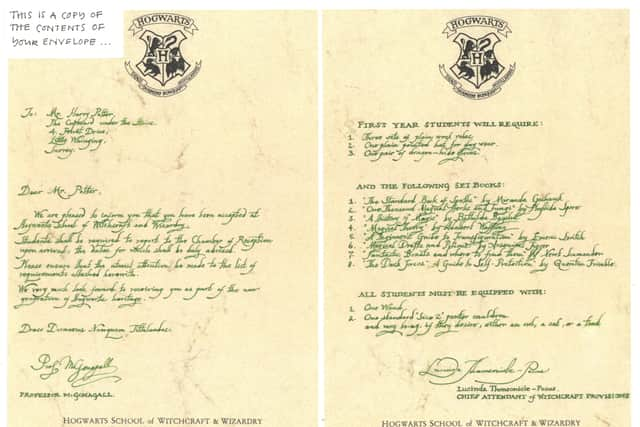 THIS IS A COPY OF
THE CONTENTS OF
YOUR ENVELOPE ...
HOGWARTS
To: Mr. Harry Potter,
The Cupboard under the Stairs
4, Privet Drive,
Little Whinging,
Surrey.
Dear Mr. Potter,
We are pleased to inform you that you have been accepted at
Hogwarts School of Witchcraft and Wizardry.
Students shall be required to report to the Chamber of Reception
upon arrival, the dates for which shall be duly advised.
Please ensure that the utmost attention be made to the list of
requirements attached herewith.
We very much look forward to receiving you as part of the new
generation of Hogwarts heritage.
Draco Dormiens Nunquam Titillandus.
Prof. McGonagall
PROFESSOR McGONAGALL
HOGWARTS SCHOOL of WITCHCRAFT & WIZARDRY
HOGWARTS
FIRST YEAR STUDENTS WILL REQUIRE:
1 Three sets of plain work robes
2 One plain pointed hat for day wear
3 One pair of dragon-hide gloves
AND THE FOLLOWING SET BOOKS:
1 "The Standard Book of Spells" by Miranda Goshawk
2 "One Thousand Magical Herbs and Fungi" by Phyllida Spore
3 "A History of Magic" by Bathilda Bagshot
4 "Magical Theory" by Adalbert Waffling
5 "A Beginner's Guide to Transfiguration" by Emeric Switch
6 "Magical Drafts and Potions" by Arsenius Jigger
7 "Fantastic Beasts and where to find them" by Newt Scamander
8 "The Dark Forces: A Guide to Self-Protection" by Quentin Trimble
ALL STUDENTS MUST BE EQUIPPED WITH:
1 One Wand
2 One standard 'Size 2' pewter cauldron
and may bring, if they desire, either an owl, a cat, or a toad
Lucinda Thomsonicle-Pocus
LUCINDA Thomsonicle-Pocus
CHIEF ATTENDANT of WITCHCRAFT PROVISIONS
HOGWARTS SCHOOL of WITCHCRAFT & WIZARDRY